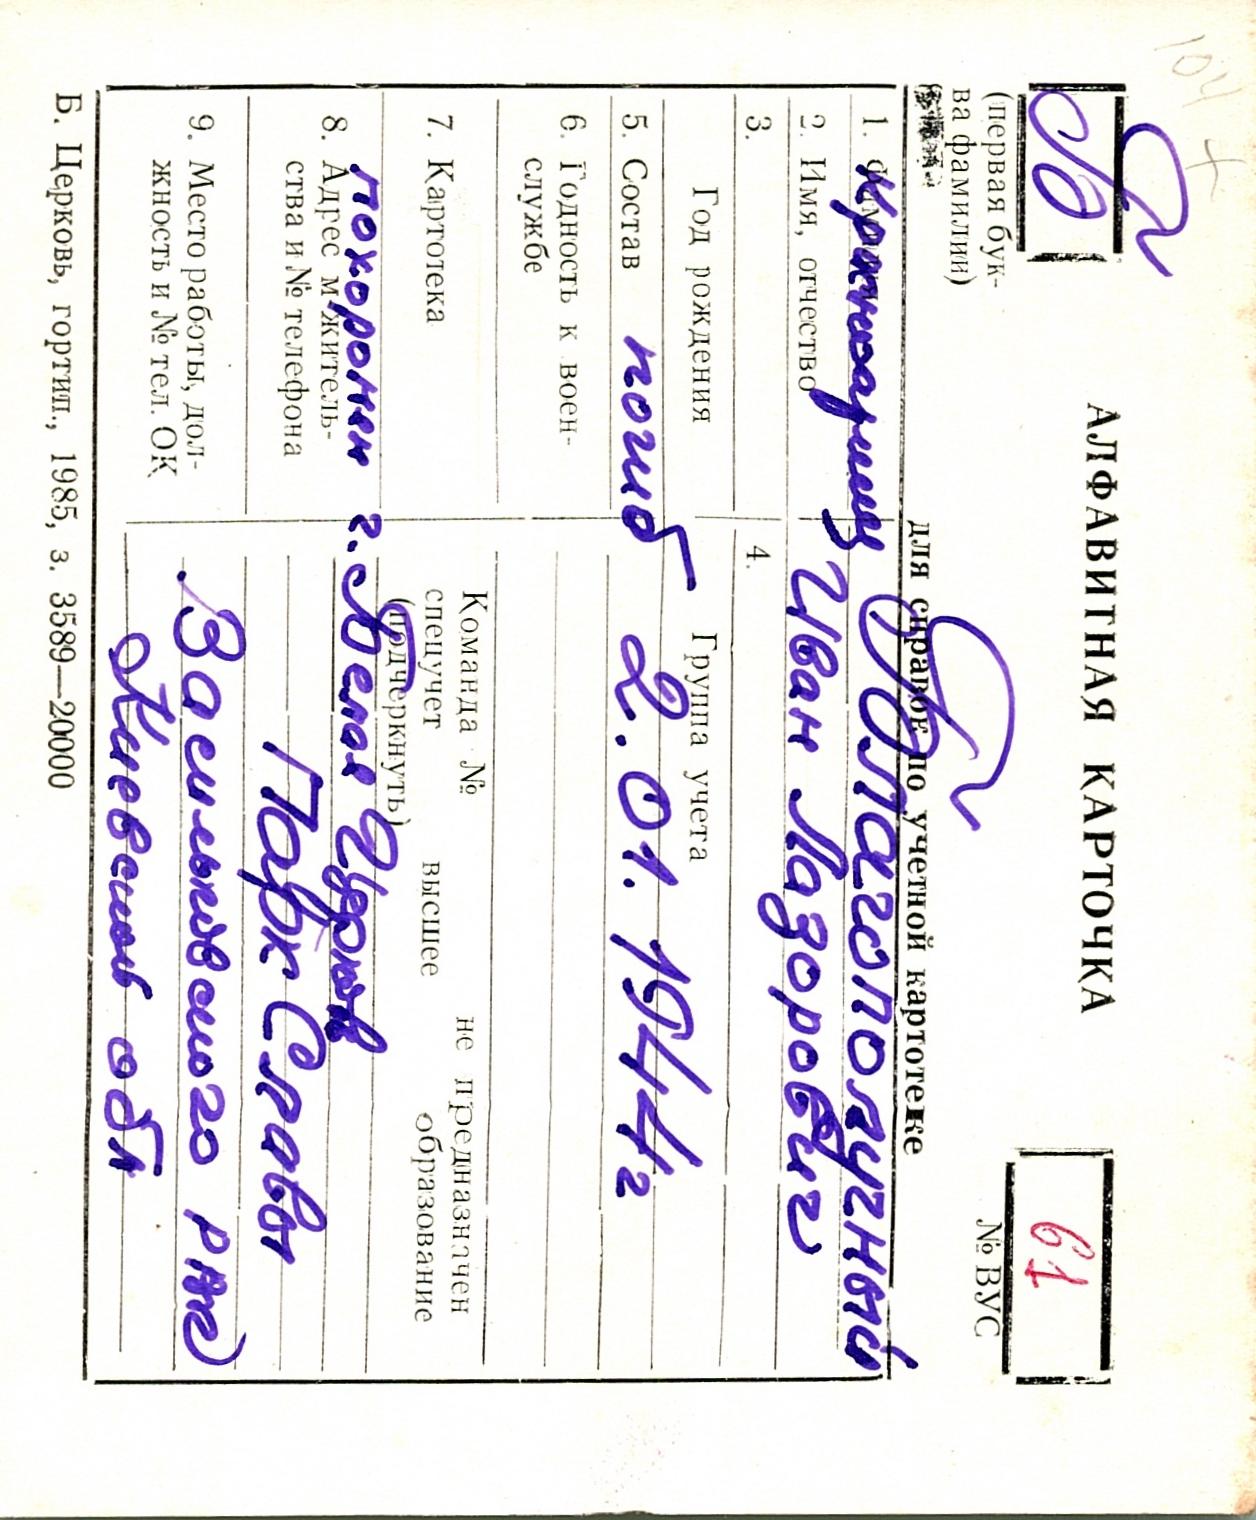 104 +
Б
(первая бук-
ва фамилии)
АЛФАВИТНАЯ КАРТОЧКА
для справок по учетной картотеке
61
№ ВУС
1. Красноармеец Благополучный
2. Имя, отчество Иван Лазорович
3.
4.
Год рождения
Группа учета
5. Состав погиб 2.01.1944г
6. Годность к воен-
службе
7. Картотека
Команда № не предназначен
спецучет высшее образование
(подчеркнуть)
8. Адрес м житель-
ства и № телефона
похоронен г. Белая Церков
Парк Славы
9. Место работы, дол-
жность и № тел. ОК
Васильковского р-на
Киевской обл
Б. Церковь, гортип., 1985, з. 3589—20000